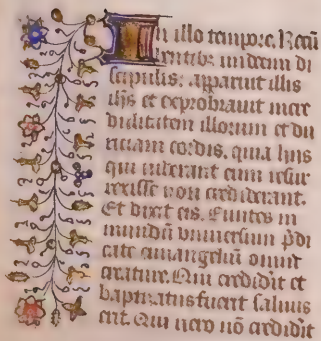 In illo tempore. Recū
bentibꝫ undecim di
scipulis: apparuit illis
ihs et exprobrauit incre
dulitatem illorum et du
riciam cordis. quia hiis
qui uiderant eum resur
rexisse non crediderant.
Et dixit eis. Euntes in
mundū uniuersum p̄di
cate euuangeliū omni
creature. Qui crediderit et
baptizatus fuerit saluus
erit. Qui uero nō crediderit